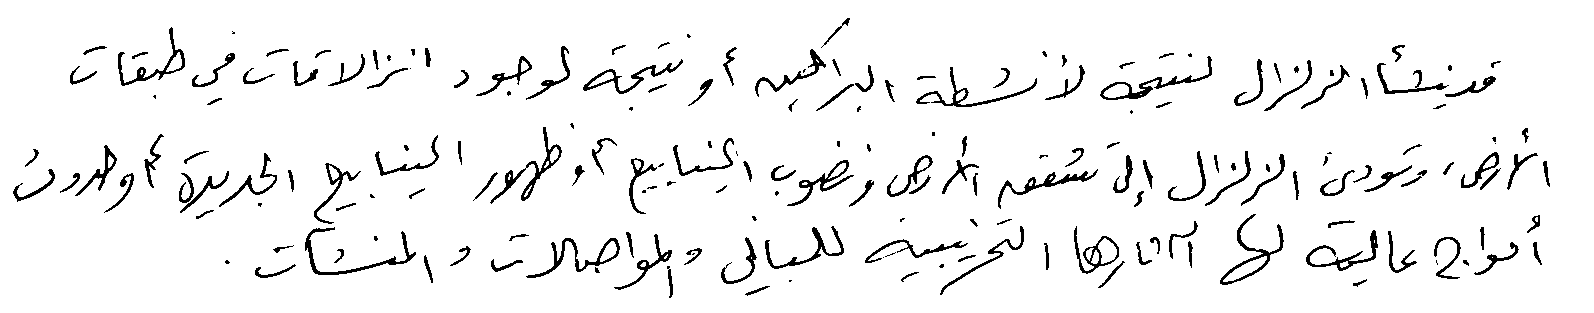 قد ينشأ الزلزال كنتيجة لأنشطة البراكين أو نتيجة لوجود انزلاقات في طبقات
الأرض، وتودئ الزلزال إلى تشقق الأرض ونضوب الينابيع أو ظهور الينابيع الجديدة أو حدوث
أمواج عالية لها آثارها التخريبية للمباني والمواصلات والمنشآت.